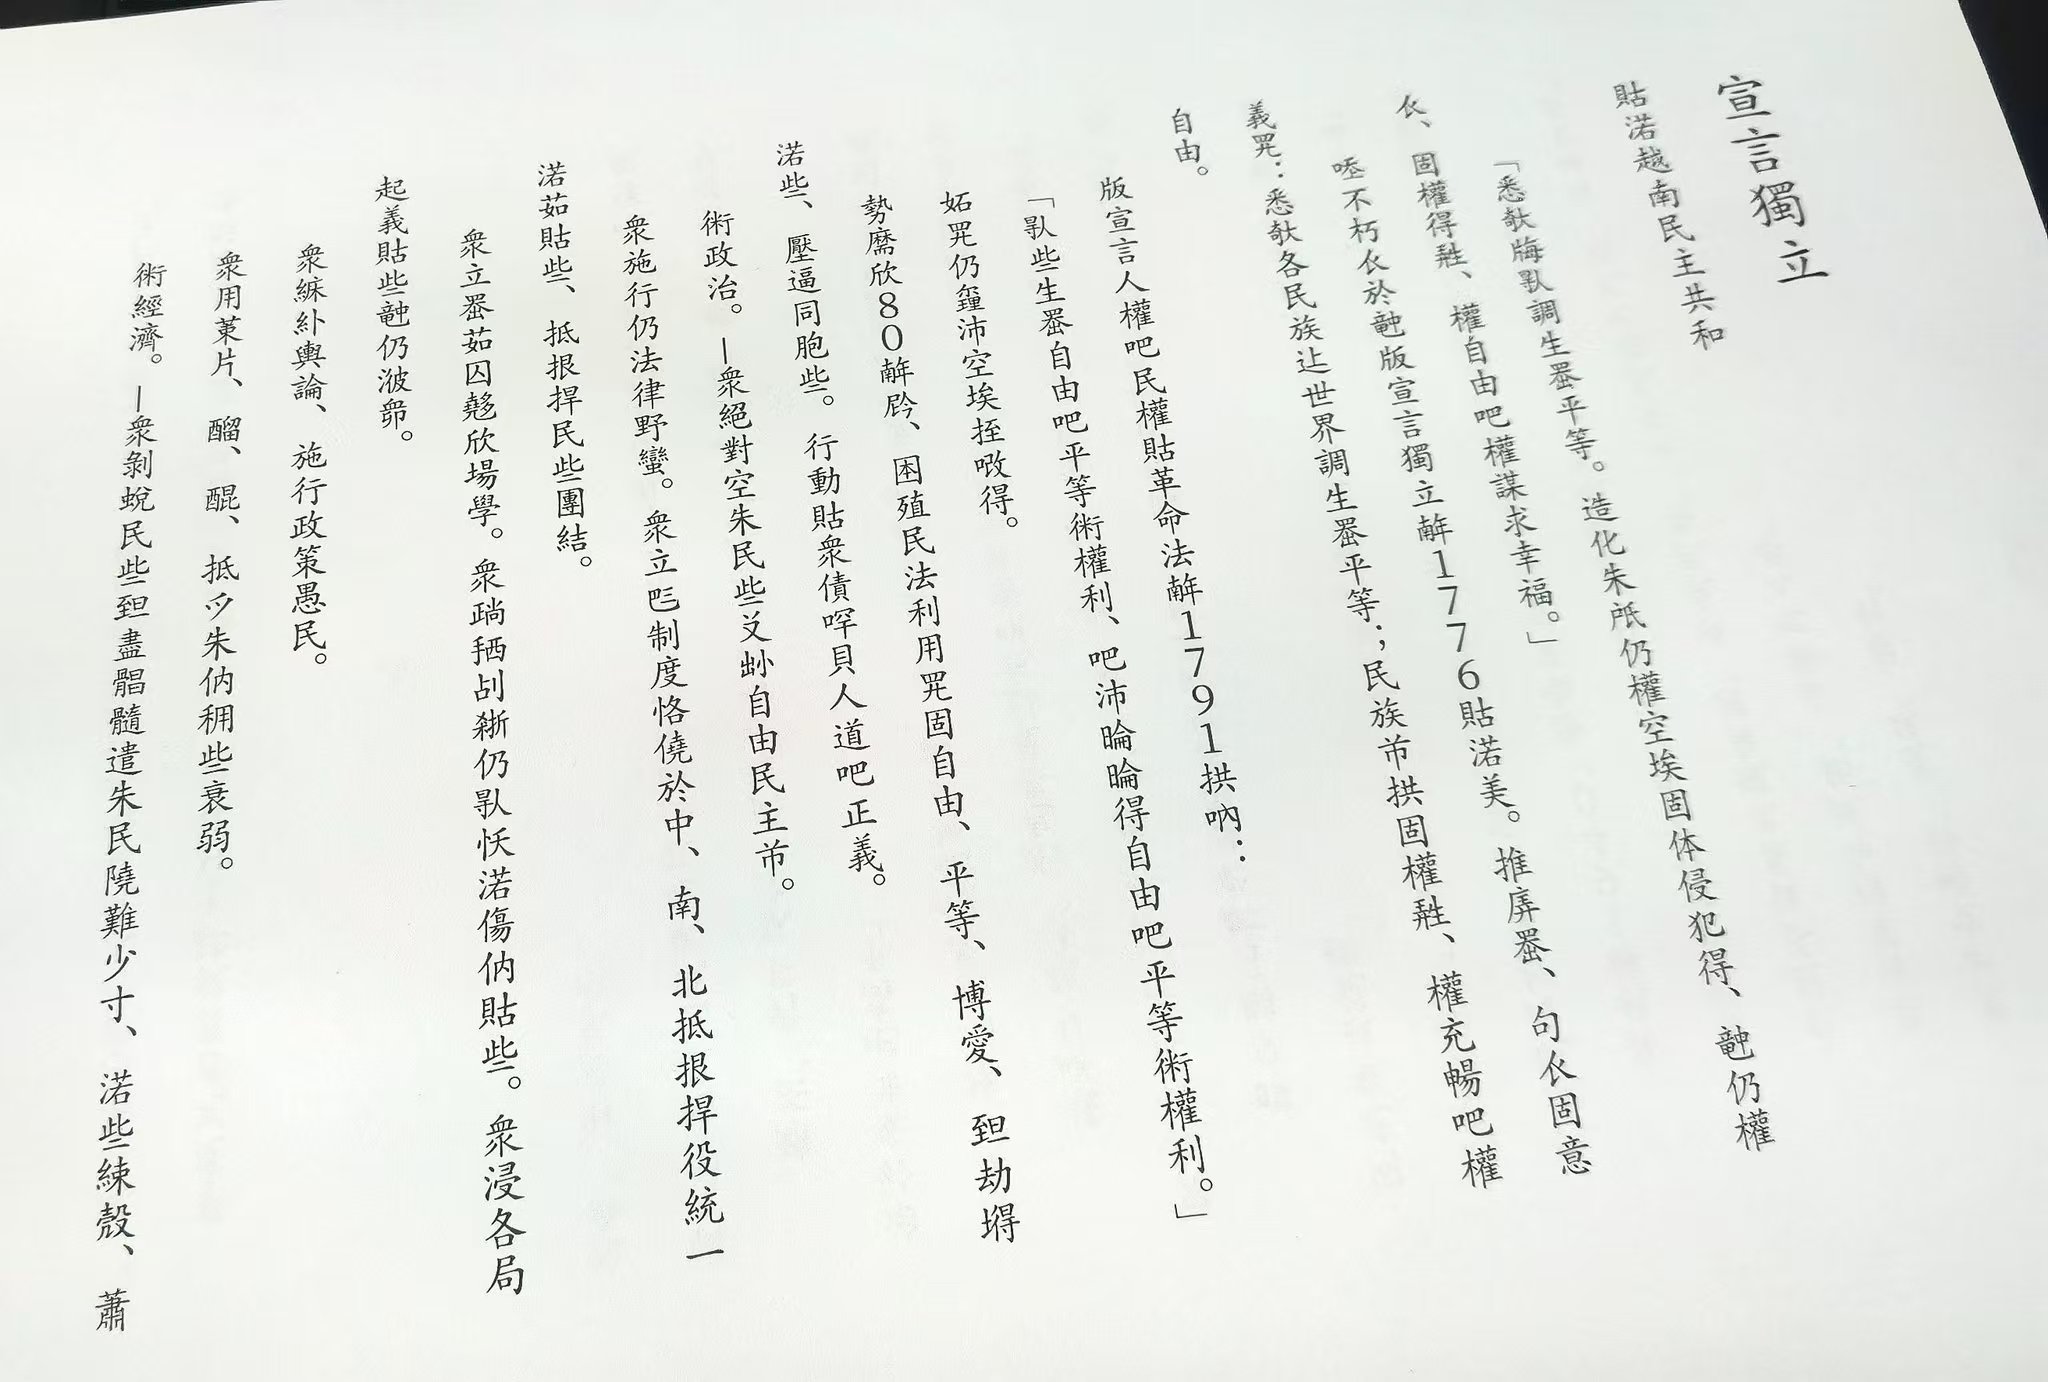 宣言獨立
貼渃越南民主共和
「悉𪥘𤗆𠊛調生𦋦平等。造化朱𣱆仍權空埃固体侵犯得、𥪝仍權
𧘇、固權得𤯨、權自由吧權謀求幸福。」
𠳒不朽𧘇於𥪝版宣言獨立𢆥1776貼渃美。推𢌌𦋦、句𧘇固意
義𱺵：悉𪥘各民族𨑗世界調生𦋦平等；民族芾拱固權𤯨、權充暢吧權
自由。
版宣言人權吧民權貼革命法𢆥1791拱吶：
「𠊛些生𦋦自由吧平等術權利、吧沛㫻㫻得自由吧平等術權利。」
妬𱺵仍𨤰沛空埃挃𠳚得。
勢𦓡欣80𢆥𫢩、困殖民法利用𱺵固自由、平等、博愛、𦤾劫
渃些、壓逼同胞些。行動貼衆債哻貝人道吧正義。
術政治。—衆絕對空朱民些𠬠𡮈自由民主芾。
衆施行仍法律野蠻。衆立𠀧制度恪僥於中、南、北抵拫捍役統一
渃茹貼些、抵拫捍民些團結。
衆立𦋦茹囚欣場學。衆仍𠊛渃傷㑚貼些。衆浸各局
起義貼些𥪝仍。
衆輿論、施行政策愚民。
衆用菓片、醞、抵朱㑚些衰弱。
術經濟。—衆剝民些𦤾盡髓遣朱民隢難少寸、渃些、蕭